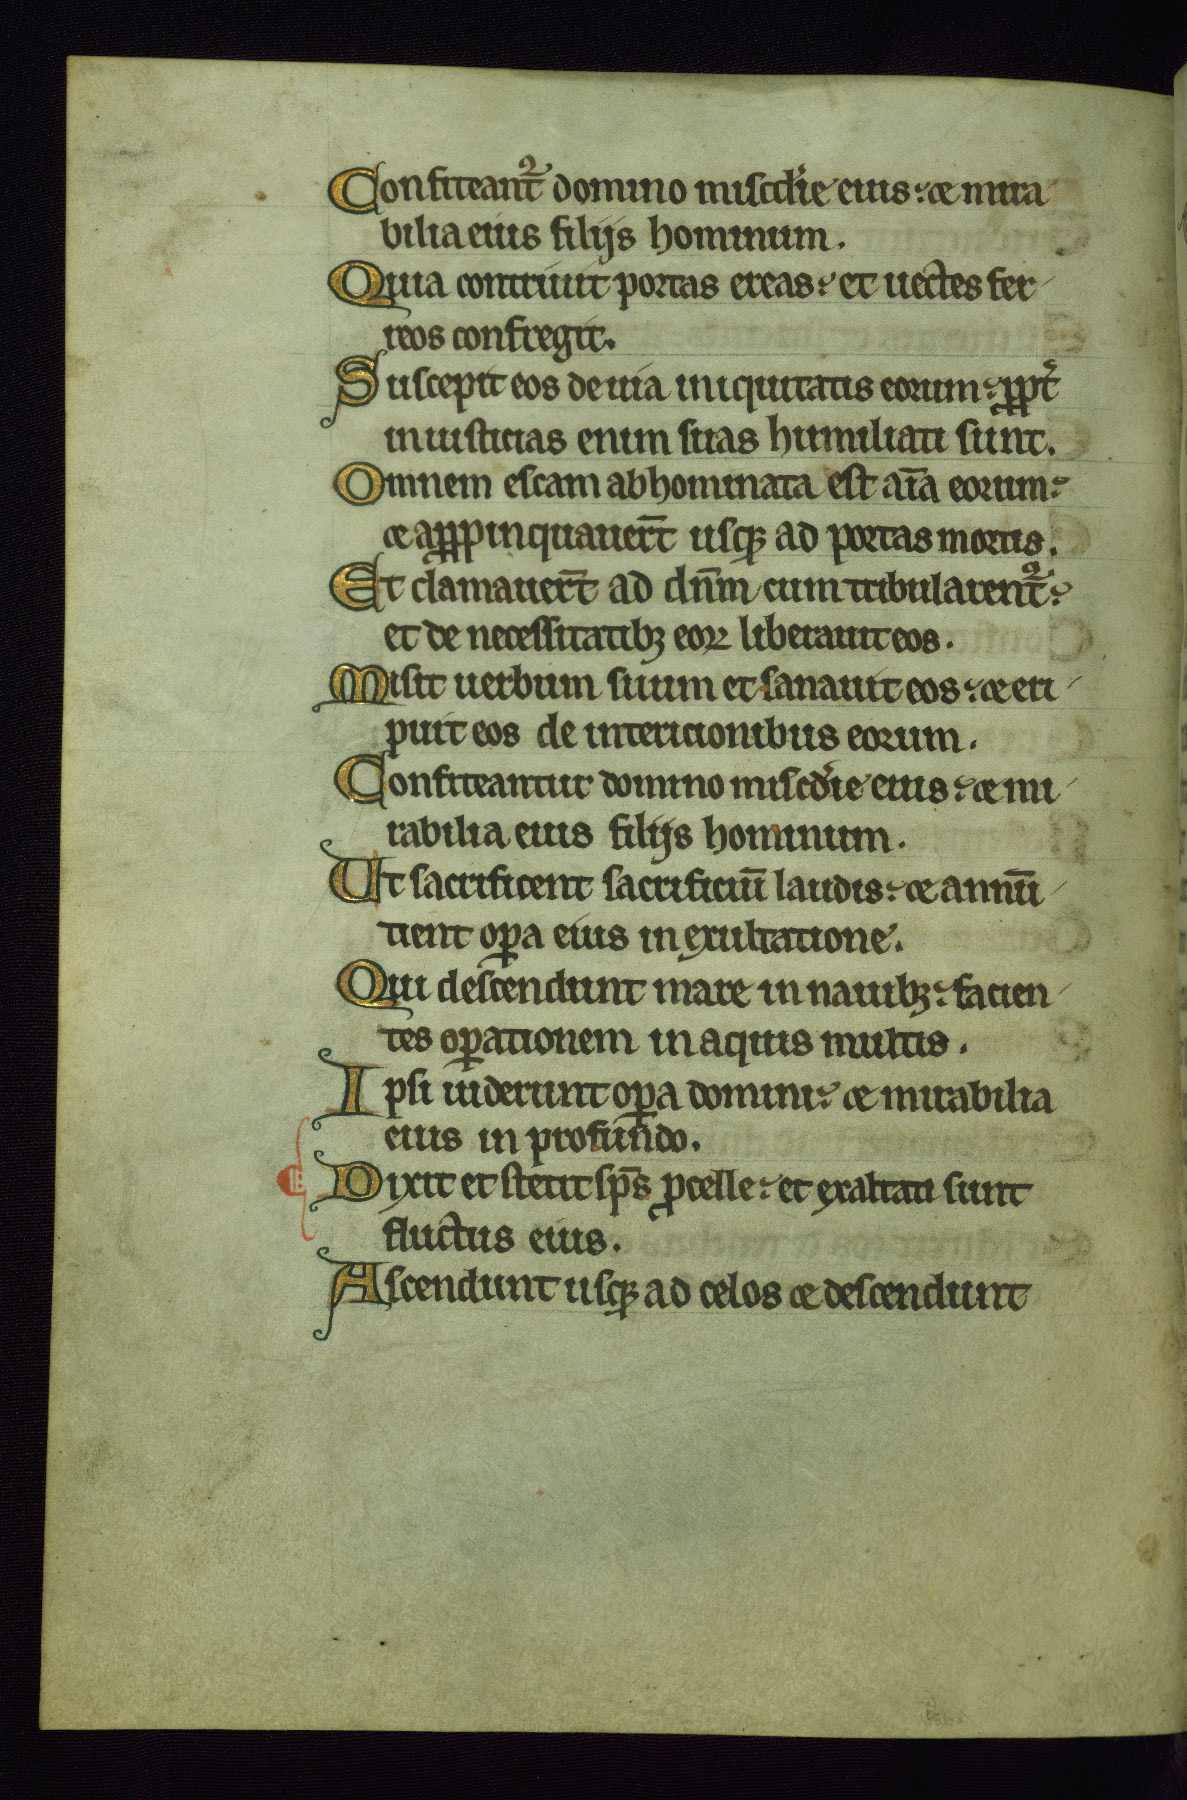 Confiteant᷑ domino miscd̓ie eius: ⁊ mira
bilia eius filijs hominum.
Quia contriuit portas ereas: et uectes fer
reos confregit.
Suscepit eos de uia iniquitatis eorum: ꝓpt̓
iniusticias enim suas humiliati sunt.
Omnem escam abhominata est aīa eorum:
⁊ aꝓpinquauer̄t usq; ad portas mortis.
Et clamauer̄t ad dn̄m cum tribularent᷑:
et de necessitatib; eoꝝ liberauit eos.
Misit uerbum suum et sanauit eos: ⁊ eri
puit eos de intericionibus eorum.
Confiteantur domino miscd̓ie eius: ⁊ mi
rabilia eius filijs hominum.
Ut sacrificent sacrificiū laudis: ⁊ annū
tient oꝑa eius in exultatione.
Qui descendunt mare in nauib;: facien
tes oꝑationem in aquis multis.
Ipsi uiderunt oꝑa domini: ⁊ mirabilia
eius in profundo.
Dixit et stetit sp̄s ꝓcelle: et exaltati sunt
fluctus eius.
Ascendunt usq; ad celos ⁊ descendunt